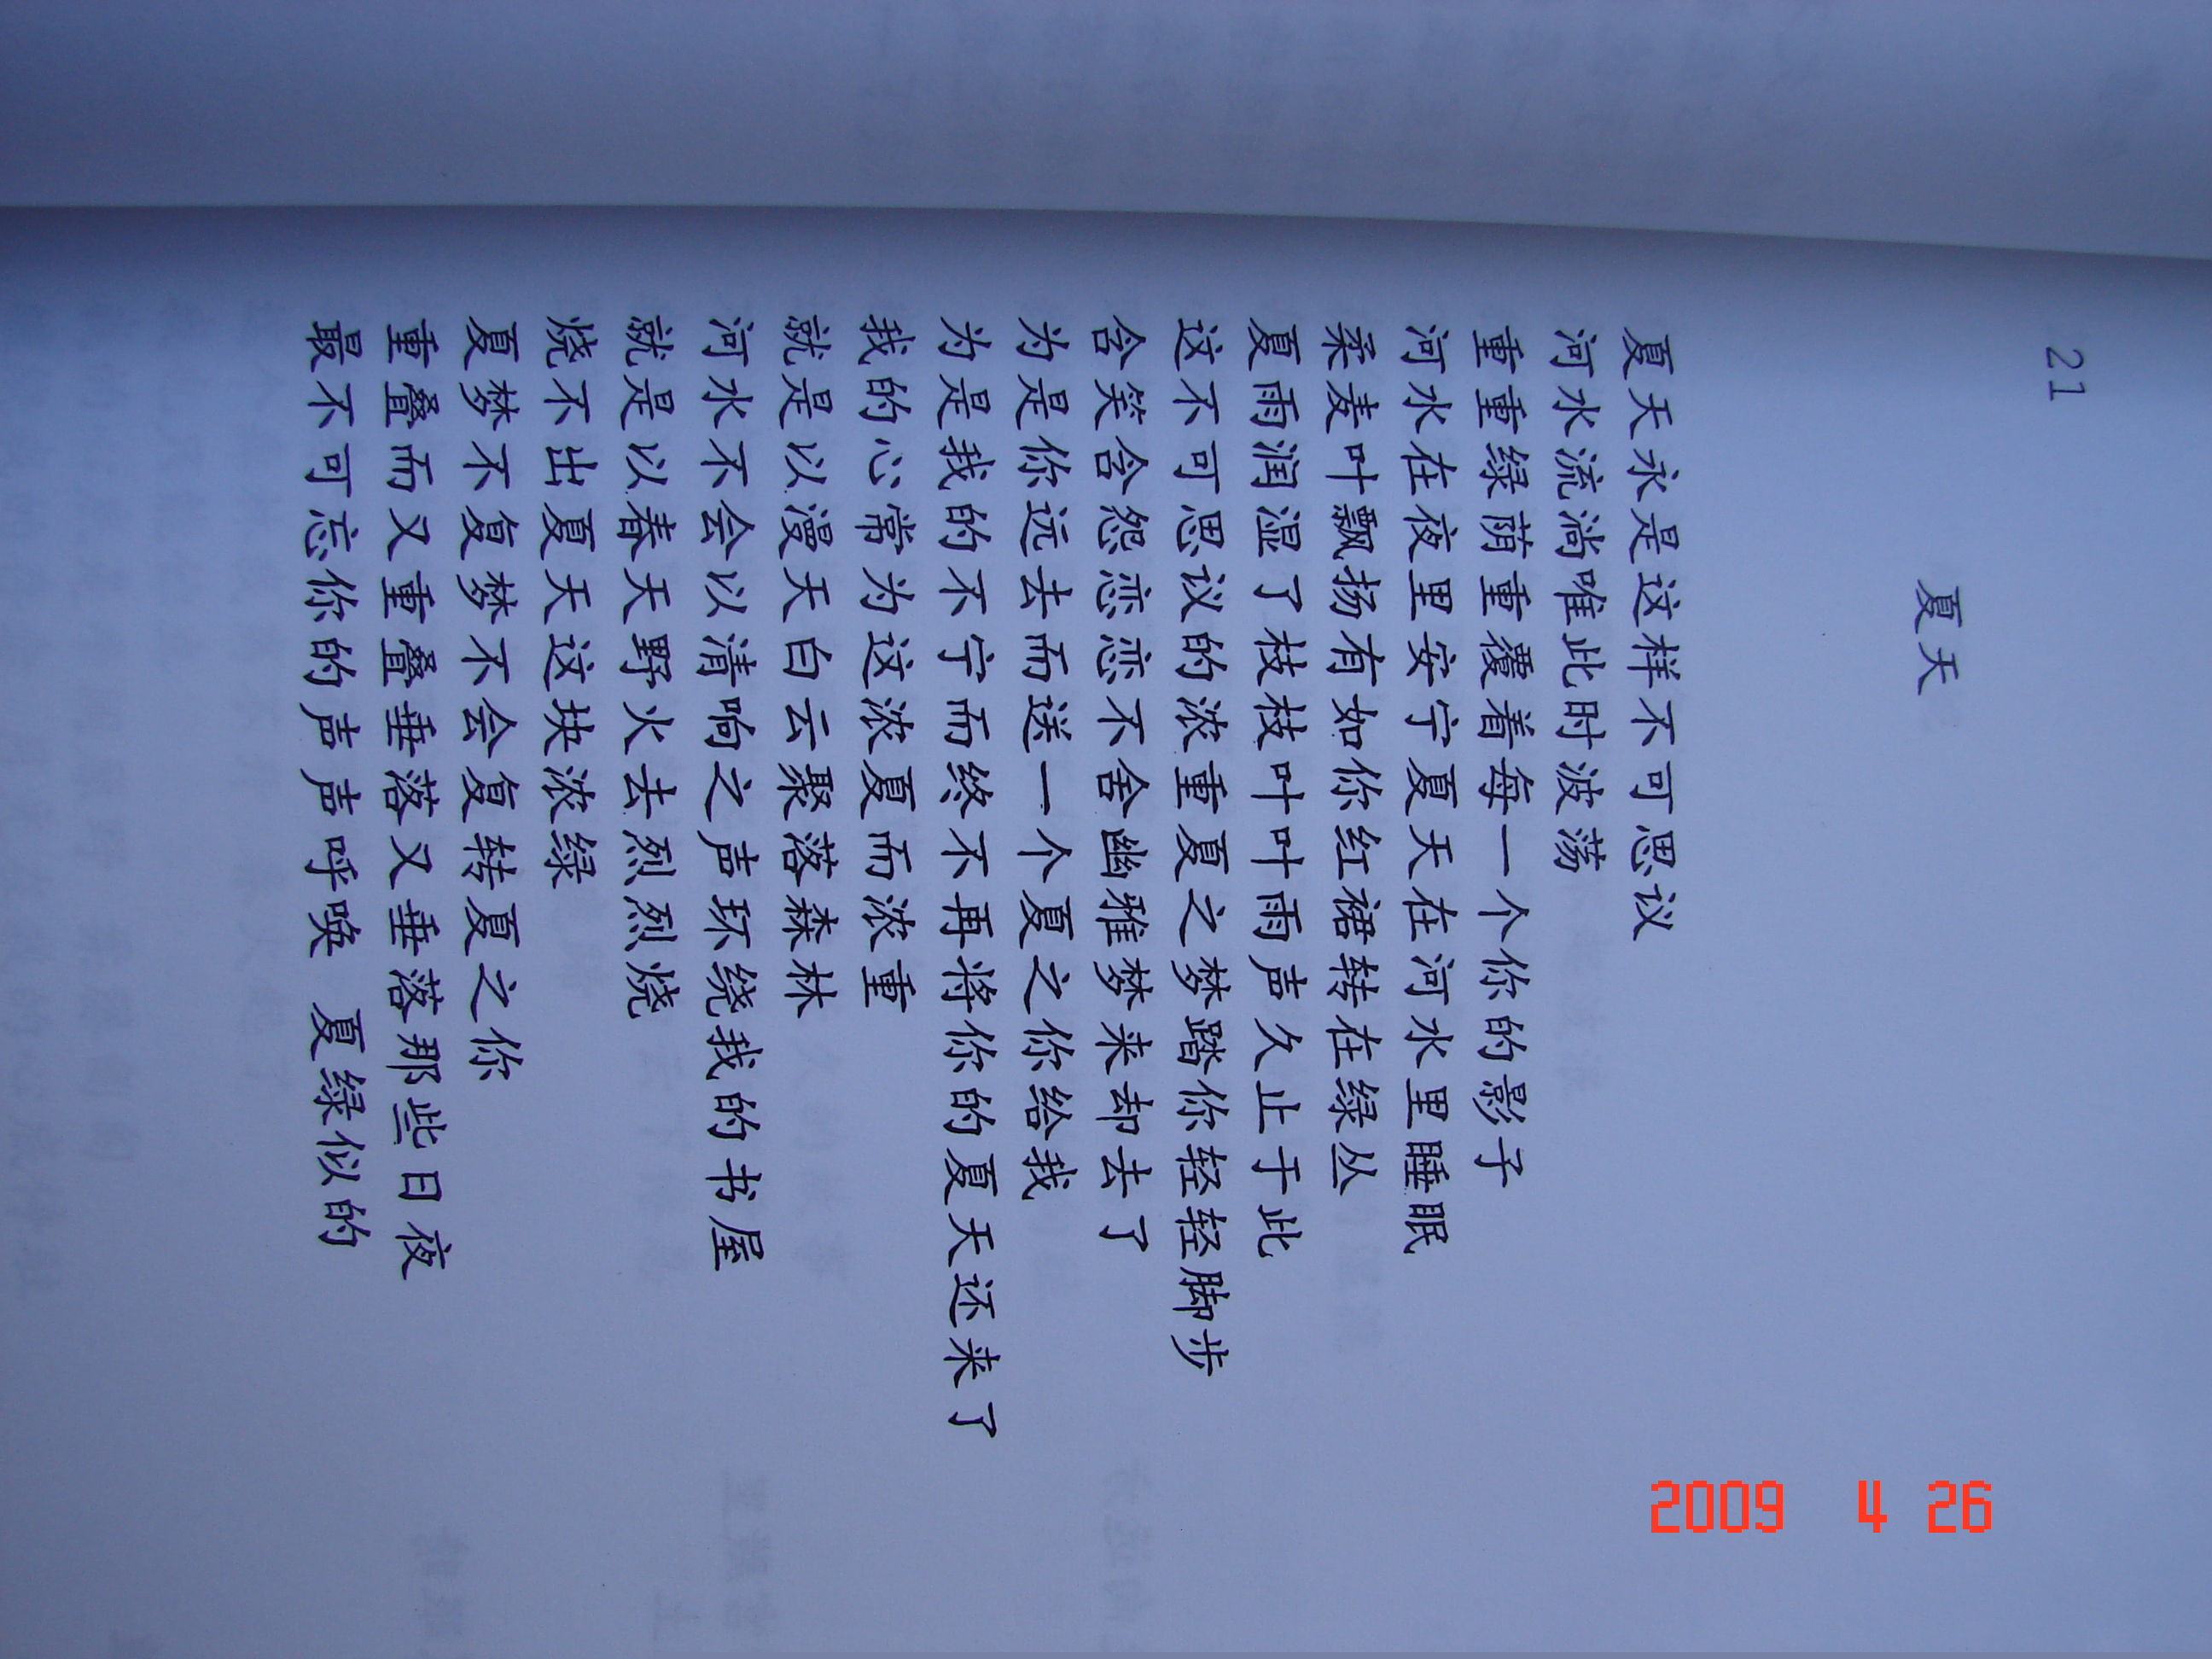 21
夏天
夏天永是这样不可思议
河水流淌唯此时波荡
重重绿荫重覆着每一个你的影子
河水在夜里安宁夏天在河水里睡眠
柔麦叶飘扬有如你红裙转在绿丛
夏雨润湿了枝枝叶叶雨声久止于此
这不可思议的浓重夏之梦踏你轻轻脚步
含笑含怨恋恋不舍幽雅梦来却去了
为是你远去而送一个夏之你给我
为是我的不宁而终不再将你的夏天还来了
我的心常为这浓夏而浓重
就是以漫天白云聚落森林
河水不会以清响之声环绕我的书屋
就是以春天野火去烈烈烧
烧不出夏天这块浓绿
夏梦不复梦不会复转夏之你
重叠而又重叠垂落又垂落那些日夜
最不可忘你的声声呼唤 夏绿似的
2009 4 26